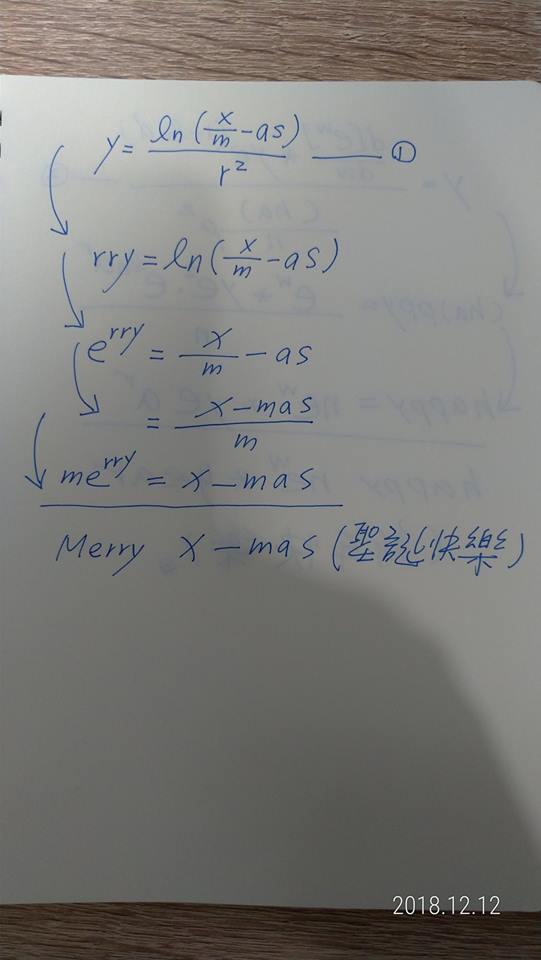 y = ln(x/m - as) / r² —— ①
rry = ln(x/m - as)
e^rry = x/m - as
= x-mas / m
me^rry = x-mas
Merry X-mas (聖誕快樂)
2018.12.12